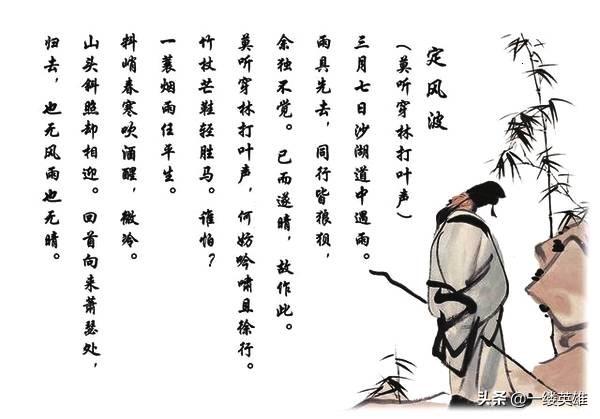 定风波
（莫听穿林打叶声）
三月七日沙湖道中遇雨。
雨具先去，同行皆狼狈，
余独不觉。已而遂晴，故作此。
莫听穿林打叶声，何妨吟啸且徐行。
竹杖芒鞋轻胜马。谁怕？
一蓑烟雨任平生。
料峭春寒吹酒醒，微冷。
山头斜照却相迎。回首向来萧瑟处，
归去，也无风雨也无晴。
头条 @一缕英雄